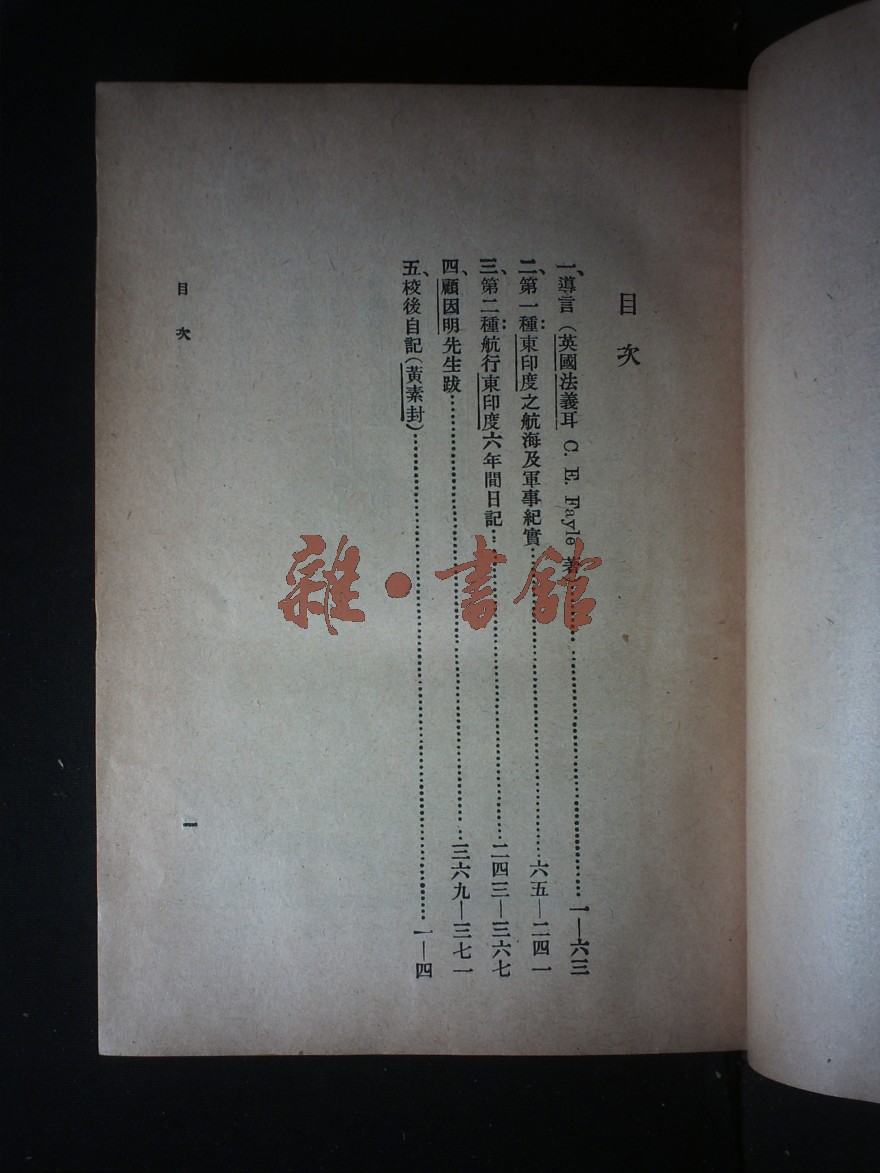 目次
一、導言(英國法義耳 C. E. Fayle 著)……一—六三
二、第一種：東印度之航海及軍事紀實……六五—二四一
三、第二種：航行東印度六年間日記……二四三—三六七
四、顧因明先生跋……三六九—三七一
五、校後自記(黃素封)……一—四
目次
一
雜·書館